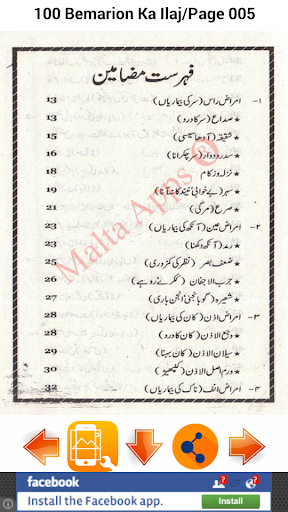 100 Bemarion Ka Ilaj/Page 005
فہرست مضامین
۱- امراض راس (سر کی بیماریاں) 13
★ صداع (سر کا درد) 13
★ شقیقہ (آدھا سیسی) 15
★ سدر و دوار (سر چکرانا) 16
★ نزلہ و زکام
★ سہر (بے خوابی نیند کا نہ آنا) 19
★ صرع (مرگی) 21
۲- امراض عین (آنکھ کی بیماریاں)
★ رمد (آنکھ دکھنا) 23
★ ضعف بصر (نظر کی کمزوری) 25
★ جرب الاجفان (ککرے روہے) 26
★ شعیرہ (گوہانجنی انجن ہاری)
۳- امراض اذن (کان کی بیماریاں) 28
★ وجع الاذن (کان کا درد) 28
★ سیلان الاذن (کان بہنا) 29
★ ورم اصل الاذن (کنپھیڑ) 30
۴- امراض انف (ناک کی بیماریاں) 32
Malta Apps ®
facebook
Install the Facebook app.
Install